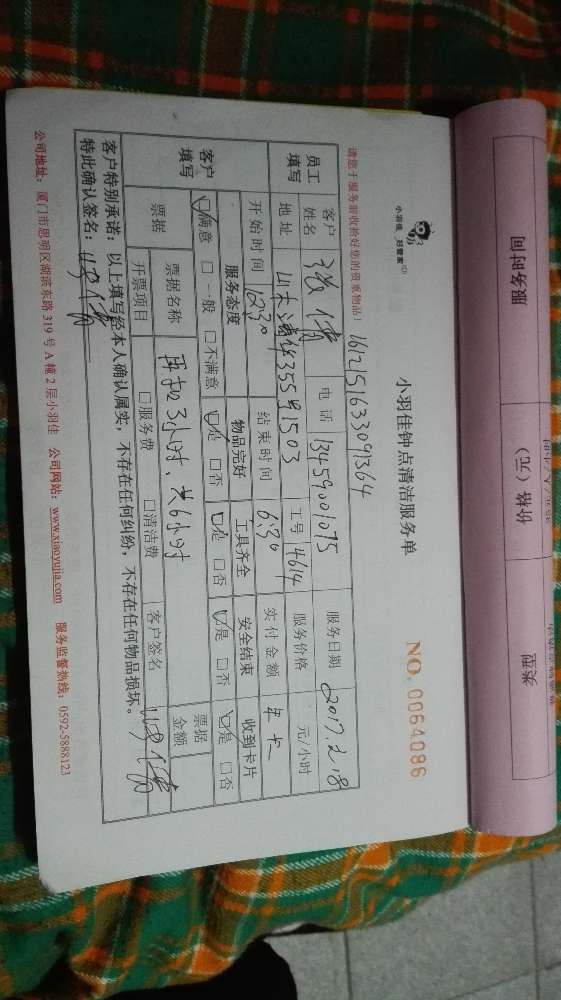 小羽佳 好管家
小羽佳钟点清洁服务单
NO. 0064086
请您于服务前收拾好您的贵重物品!
1612151633091364
员工填写 客户姓名 电话 13459001075 服务日期 2017.2.18
地址 35#1503 工号 4614 服务价格 元/小时
开始时间 12:30 结束时间 6:30 实付金额 年卡
客户填写 服务态度 物品完好 工具齐全 安全结束 收到卡片
☑满意 □一般 □不满意 ☑是 □否 ☑是 □否 ☑是 □否 ☑是 □否
票据 票据名称 再扣3小时、共6小时 票据金额
开票项目 □服务费 □清洁费 客户签名
客户特别承诺:以上填写经本人确认属实,不存在任何纠纷,不存在任何物品损坏。
特此确认签名:
公司地址:厦门市思明区湖滨东路319号A幢2层小羽佳 公司网站:www.xiaoyujia.com 服务监督热线:0592-5888123
服务时间
价格(元)
类型